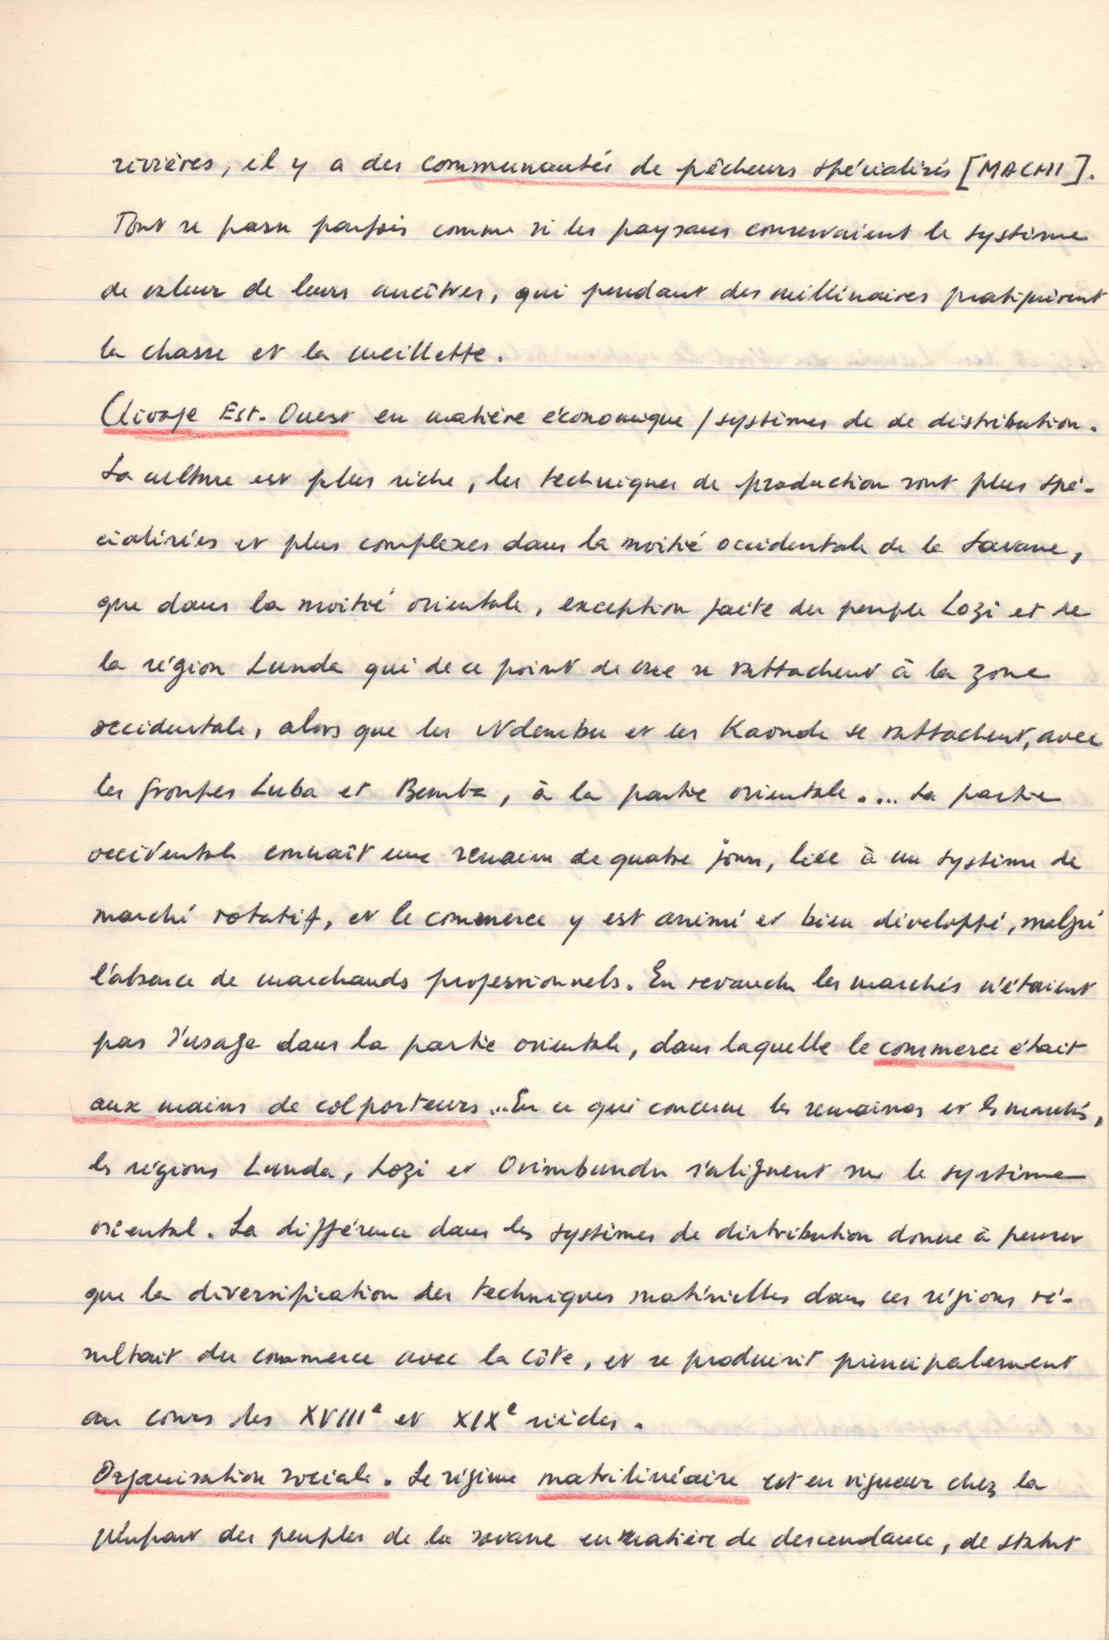 rivières, il y a des communautés de pêcheurs spécialisés [MACHI].
Tout se passe parfois comme si les paysans conservaient le système
de valeur de leurs ancêtres, qui pendant des millénaires pratiquèrent
la chasse et la cueillette.
Clivage Est-Ouest en matière économique / systèmes de de distribution.
La culture est plus riche, les techniques de production sont plus spé-
cialisées et plus complexes dans la moitié occidentale de la savane,
que dans la moitié orientale, exception faite du peuple Lozi et de
la région Lunda qui de ce point de vue se rattachent à la zone
occidentale, alors que les Ndembu et les Kaonde se rattachent, avec
les groupes Luba et Bemba, à la partie orientale.... La partie
occidentale connaît une semaine de quatre jours, liée à un système de
marché rotatif, et le commerce y est animé et bien développé, malgré
l'absence de marchands professionnels. En revanche les marchés n'étaient
pas d'usage dans la partie orientale, dans laquelle le commerce était
aux mains de colporteurs...En ce qui concerne les semaines et les marchés,
les régions Lunda, Lozi et Ovimbundu s'alignent sur le système
oriental. La différence dans les systèmes de distribution donne à penser
que la diversification des techniques matérielles dans ces régions ré-
sultait du commerce avec la côte, et se produisit principalement
au cours des XVIIIe et XIXe siècles.
Organisation sociale. Le régime matrilinéaire est en vigueur chez la
plupart des peuples de la savane en matière de descendance, de statut